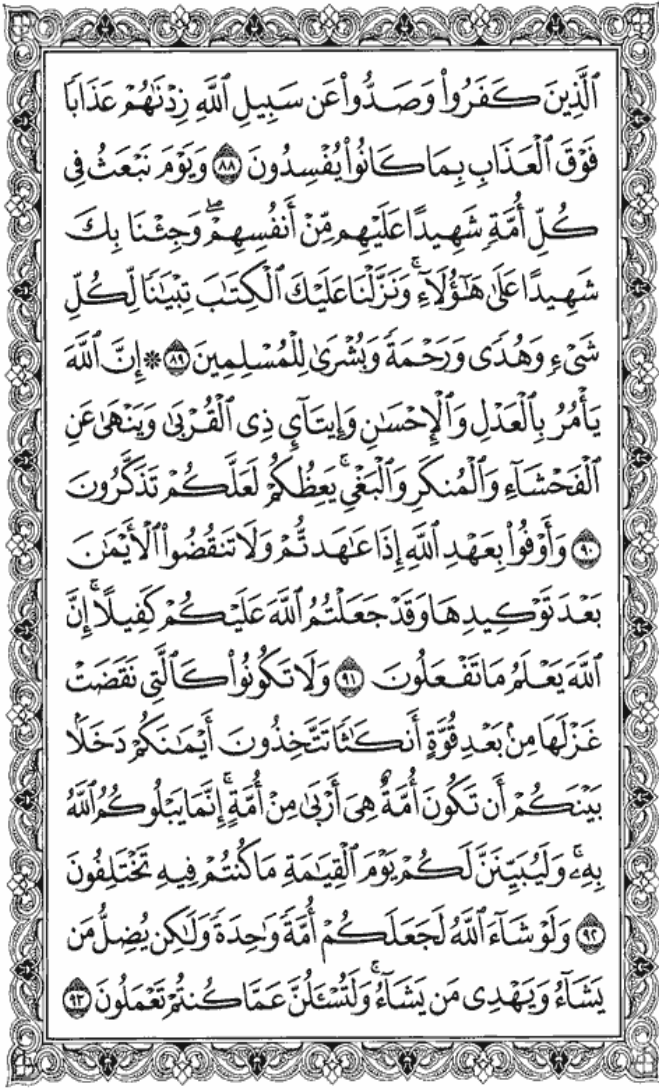 ٱلَّذِينَ كَفَرُوا۟ وَصَدُّوا۟ عَن سَبِيلِ ٱللَّهِ زِدْنَٰهُمْ عَذَابًا
فَوْقَ ٱلْعَذَابِ بِمَا كَانُوا۟ يُفْسِدُونَ ٨٨ وَيَوْمَ نَبْعَثُ فِى
كُلِّ أُمَّةٍ شَهِيدًا عَلَيْهِم مِّنْ أَنفُسِهِمْ ۖ وَجِئْنَا بِكَ
شَهِيدًا عَلَىٰ هَٰٓؤُلَآءِ ۚ وَنَزَّلْنَا عَلَيْكَ ٱلْكِتَٰبَ تِبْيَٰنًا لِّكُلِّ
شَىْءٍ وَهُدًى وَرَحْمَةً وَبُشْرَىٰ لِلْمُسْلِمِينَ ٨٩ ۞ إِنَّ ٱللَّهَ
يَأْمُرُ بِٱلْعَدْلِ وَٱلْإِحْسَٰنِ وَإِيتَآئِ ذِى ٱلْقُرْبَىٰ وَيَنْهَىٰ عَنِ
ٱلْفَحْشَآءِ وَٱلْمُنكَرِ وَٱلْبَغْىِ ۚ يَعِظُكُمْ لَعَلَّكُمْ تَذَكَّرُونَ
٩٠ وَأَوْفُوا۟ بِعَهْدِ ٱللَّهِ إِذَا عَٰهَدتُّمْ وَلَا تَنقُضُوا۟ ٱلْأَيْمَٰنَ
بَعْدَ تَوْكِيدِهَا وَقَدْ جَعَلْتُمُ ٱللَّهَ عَلَيْكُمْ كَفِيلًا ۚ إِنَّ
ٱللَّهَ يَعْلَمُ مَا تَفْعَلُونَ ٩١ وَلَا تَكُونُوا۟ كَٱلَّتِى نَقَضَتْ
غَزْلَهَا مِنۢ بَعْدِ قُوَّةٍ أَنكَٰثًا تَتَّخِذُونَ أَيْمَٰنَكُمْ دَخَلًۢا
بَيْنَكُمْ أَن تَكُونَ أُمَّةٌ هِىَ أَرْبَىٰ مِنْ أُمَّةٍ ۚ إِنَّمَا يَبْلُوكُمُ ٱللَّهُ
بِهِۦ ۚ وَلَيُبَيِّنَنَّ لَكُمْ يَوْمَ ٱلْقِيَٰمَةِ مَا كُنتُمْ فِيهِ تَخْتَلِفُونَ
٩٢ وَلَوْ شَآءَ ٱللَّهُ لَجَعَلَكُمْ أُمَّةً وَٰحِدَةً وَلَٰكِن يُضِلُّ مَن
يَشَآءُ وَيَهْدِى مَن يَشَآءُ ۚ وَلَتُسْـَٔلُنَّ عَمَّا كُنتُمْ تَعْمَلُونَ ٩٣